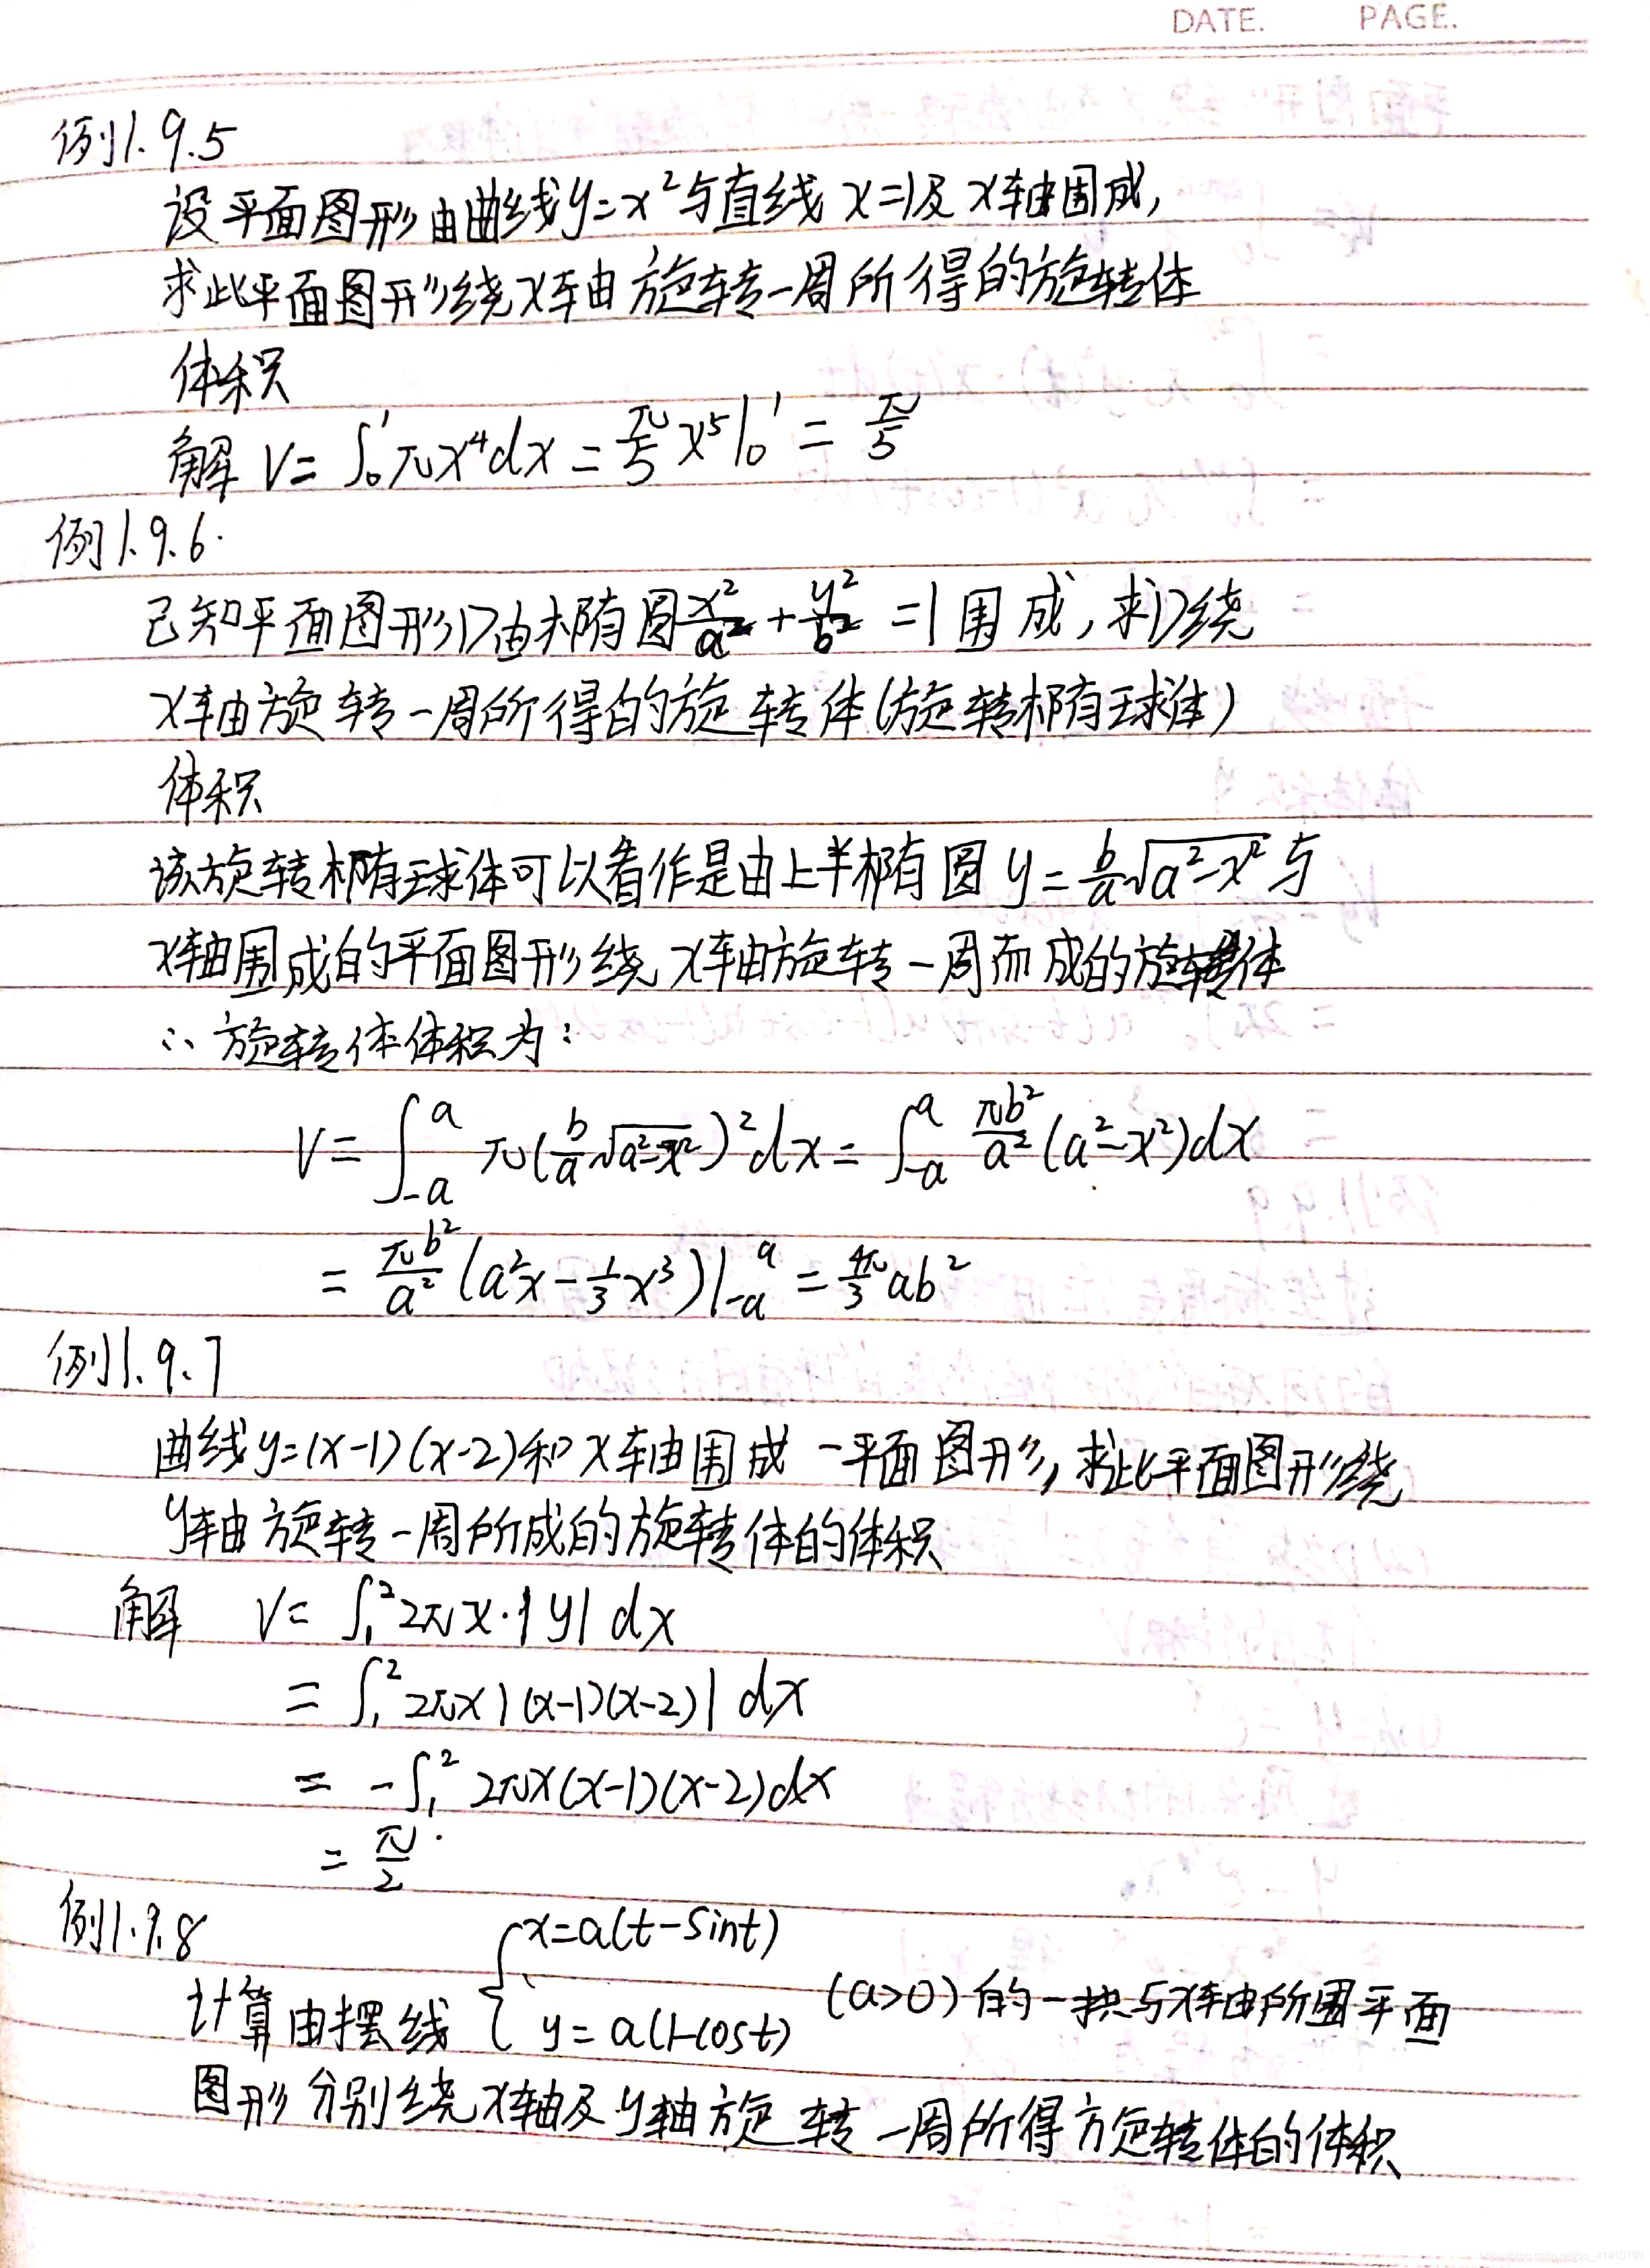 DATE. PAGE.
例1.9.5
设平面图形由曲线y=x²与直线 x=1及 x轴围成,
求此平面图形绕x轴旋转一周所得的旋转体
体积
解 V= ∫₀¹πx⁴dx = π/5 x⁵|₀¹ = π/5
例1.9.6.
已知平面图形D由椭圆x²/a² + y²/b² =1围成, 求D绕
x轴旋转一周所得的旋转体(旋转椭球体)
体积
该旋转椭球体可以看作是由上半椭圆 y = b/a√(a²-x²) 与
x轴围成的平面图形绕x轴旋转一周而成的旋转体
∴ 旋转体体积为:
V= ∫₋ₐᵃ π(b/a√(a²-x²))²dx = ∫₋ₐᵃ πb²/a² (a²-x²)dx
= πb²/a² (a²x - 1/3 x³)|₋ₐᵃ = 4π/3 ab²
例1.9.7
曲线y=(x-1)(x-2)和x轴围成一平面图形,求此平面图形绕
y轴旋转一周所成的旋转体的体积
解 V= ∫₁² 2πx·|y| dx
= ∫₁² 2πx|(x-1)(x-2)| dx
= -∫₁² 2πx(x-1)(x-2)dx
= π/2
例1.9.8
计算由摆线 { x=a(t-sint)
y=a(1-cost) (a>0)的一拱与x轴所围平面
图形分别绕x轴及y轴旋转一周所得旋转体的体积